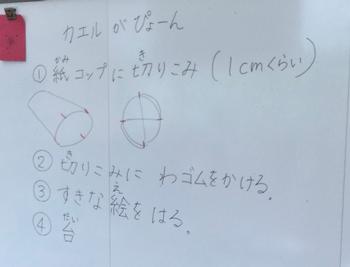 カエルがぴょーん
①紙コップに切りこみ(1cmくらい)
②切りこみにわゴムをかける。
③すきな絵をはる。
④台